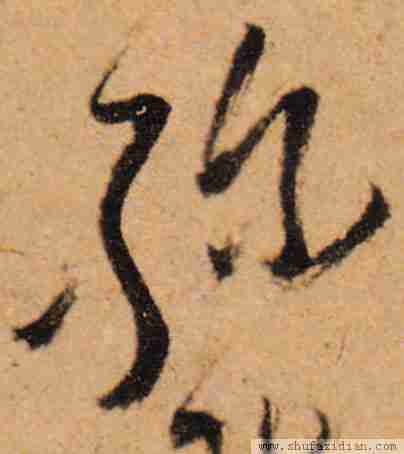 孤
www.shufazidian.com